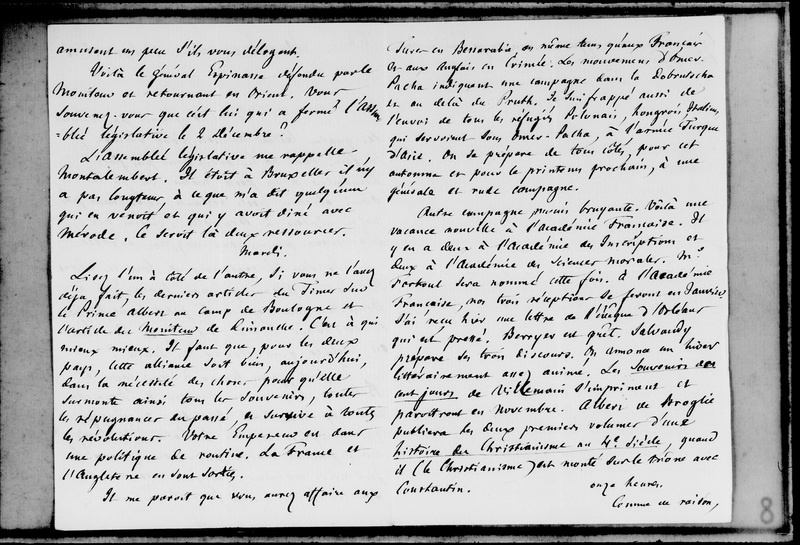 amusent un peu s'ils vous délogent.
Voilà le général Espinasse défendu par le
Moniteur et retournant en Orient. Vous
souvenez-vous que c'est lui qui a fermé l'Assem
=blée législative le 2 Décembre ?
L'assemblée législative me rappelle
Montalembert. Il étoit à Bruxelles il n'y
a pas longtems, à ce que m'a dit quelqu'un
qui en venoit et qui y avoit diné avec
Mérode. Ce seroit là deux ressources.
Mardi.
Lisez l'un à côté de l'autre, si vous ne l'avez
déja fait, les derniers articles du Times sur
le Prince Albert au camp de Boulogne et
l'article du Moniteur de Dimanche. C'est à qui
mieux mieux. Il faut que, pour les deux
pays, cette alliance soit bien, aujourd'hui,
dans la nécessité des choses pour qu'elle
surmonte ainsi tous les souvenirs, toutes
les répugnances du passé, et survive à toutes
les révolutions. Votre Empereur en étant
une politique de routine. La France et
l'Angleterre en sont sorties.
Il me paroit que vous aurez affaire aux
Turcs en Bessarabie, en même tems qu'aux Français
et aux Anglais en Crimée. Les mouvemens d'Omer-
Pacha indiquent une campagne dans la Dobrutscha
et au delà du Pruth. Je suis frappé aussi de
l'envoi de tous les réfugiés Polonais, hongrois, Italiens,
qui servoient sous Omer-Pacha, à l'armée Turque
d'Asie. On se prépare de tous côtés, pour cet
automne et pour le printems prochain, à une
générale et rude campagne.
Autre campagne moins bruyante. Voilà une
vacance nouvelle à l'académie Française. Il
y en a deux à l'académie des Inscriptions et
deux à l'Académie des sciences morales. Mr
Fortoul sera nommé cette fois. à l'académie
Française, nos trois réceptions se feront en Janvier.
J'ai reçu hier une lettre de l'évêque d'Orléans
qui est pressé. Berryer est prêt. Salvandy
prépare ses trois discours. On annonce un hiver
littérairement assez animé. Les Souvenirs des
cent jours de Villemain s'impriment et
paroitront en novembre. Albert de Broglie
publiera les deux premiers volumes d'une
histoire du Christianisme au 4e Siècle, quand
il (le Christianisme) est monté sur le trône avec
Constantin.
onze heures.
Comme de raison,
8